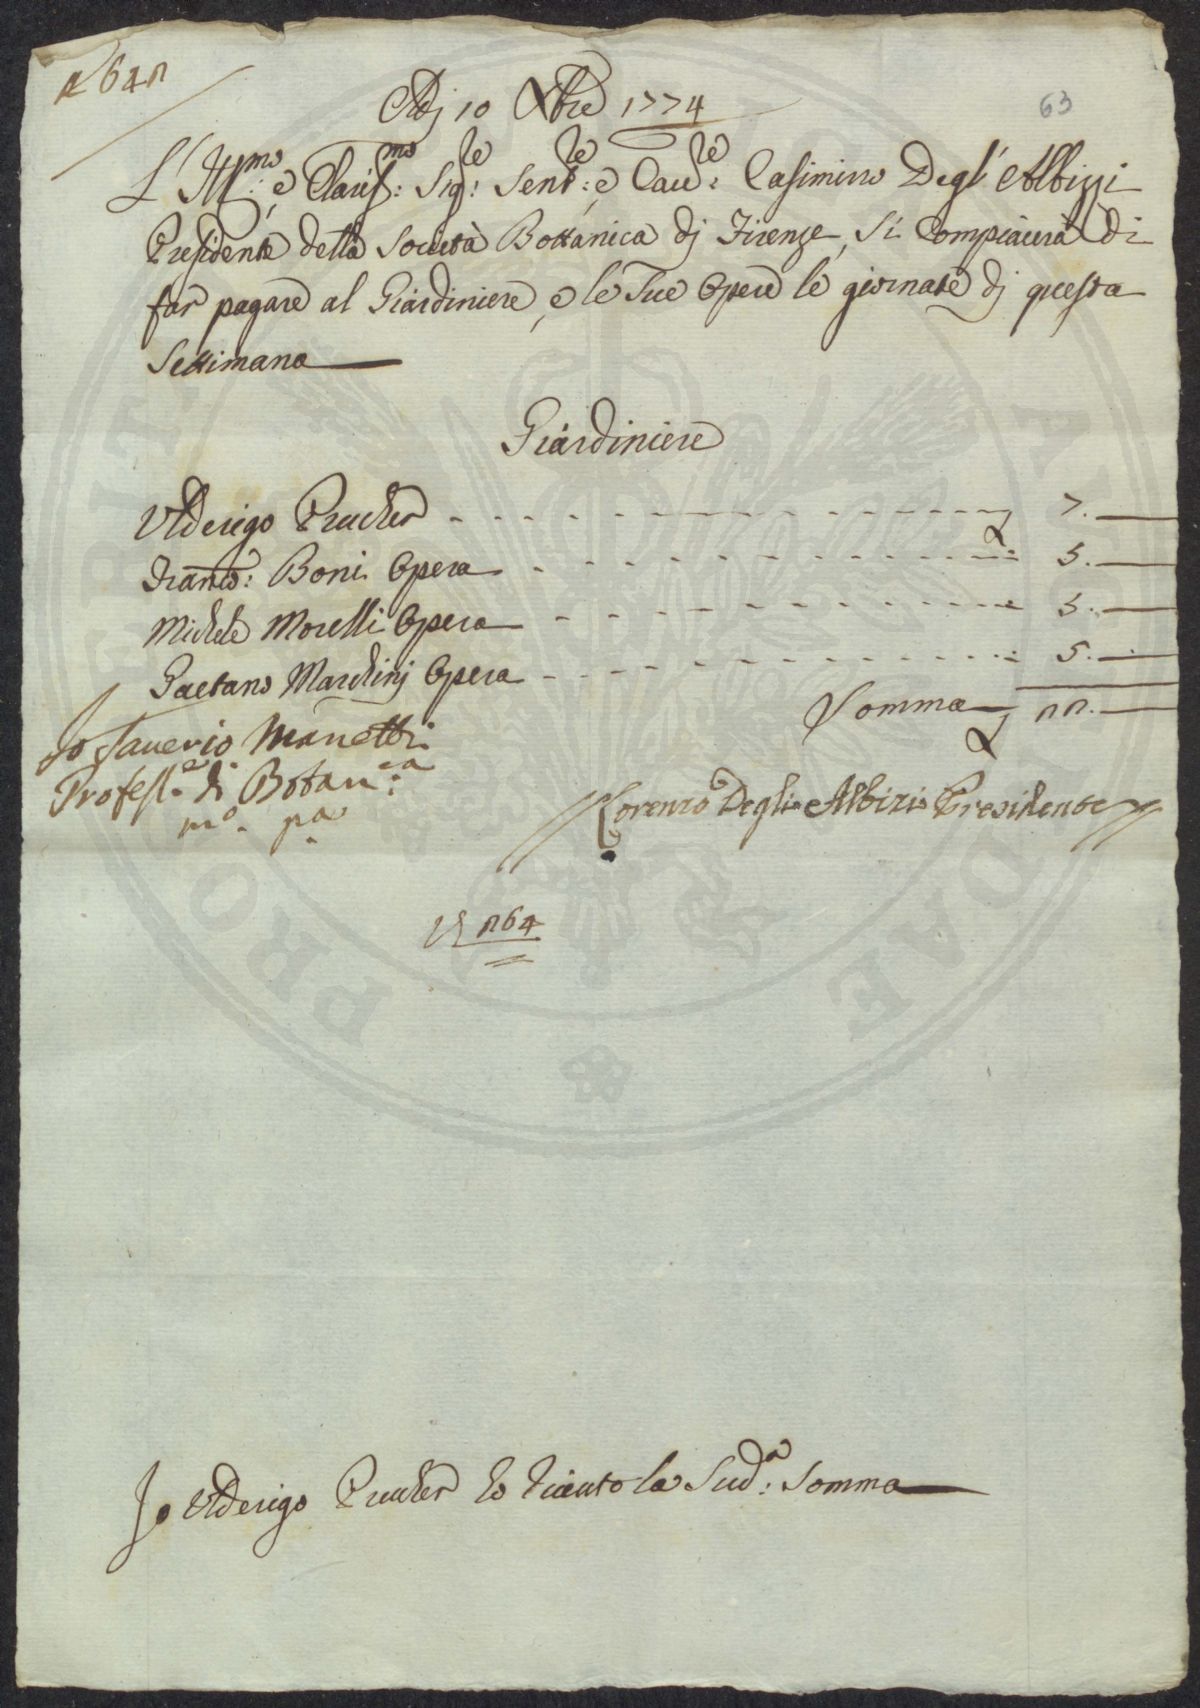 63
Adj 10 Xbre 1774
L'Ill:mo, e Clariss:mo Sig:re Sent:re, e Cav:re Casimirro Degl' Albizzi
Presidente della Società Bottanica dj Firenze, Si Compiacerà di
far pagare al Giardiniere, e le Sue Opere le giornate dj questa
Settimana
Giardiniere
Ulderigo Prucher 7.
Franco: Boni Opera 5.
Michele Morelli Opera 5.
Gaetano Marchinj Opera 5.
Somma 22.
Io Saverio Manetti
Profess.e di Botan.ca
mo. pa.
Lorenzo Degli Albizi Presidente
264
Io Ulderigo Prucher ho riceuto la Sud:a Somma